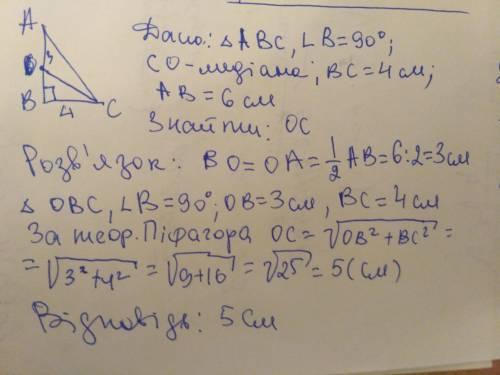 A
O
3
B
4
C
Дано: △ABC, ∠B=90°;
CO-медіана; BC=4см;
AB=6см
Знайти: OC
Розв'язок: BO=OA=1/2AB=6:2=3см
△ OBC, ∠B=90°; OB=3см, BC=4см
За теор. Піфагора OC=√OB²+BC²=
=√3²+4²=√9+16=√25=5(см)
Відповідь: 5см